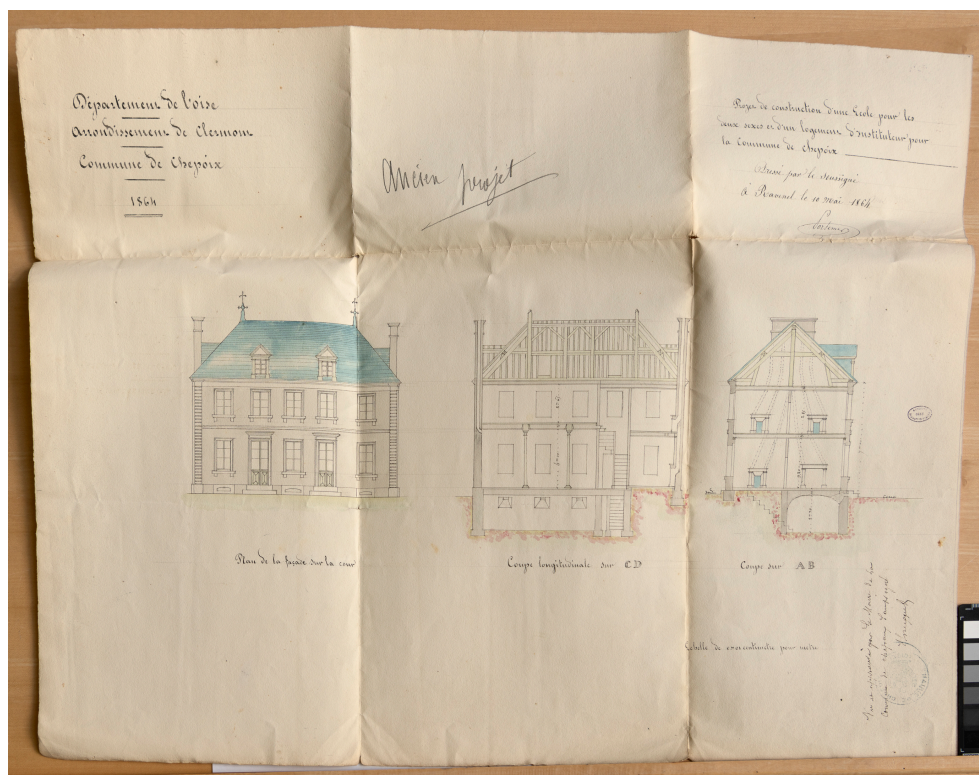 Département de l'oise
Arrondissement de Clermont
Commune de Chepoix
1864
Ancien projet
Projet de construction d'une École pour les
deux sexes et d'un logement d'instituteur pour
la Commune de Chepoix
Dressé par le soussigné
à Ravenel le 10 mai 1864
Plan de la façade sur la cour
Coupe longitudinale sur CD
Coupe sur AB
Echelle de un centimètre pour mètre
Vu et par le Maire de la
Commune de Chepoix